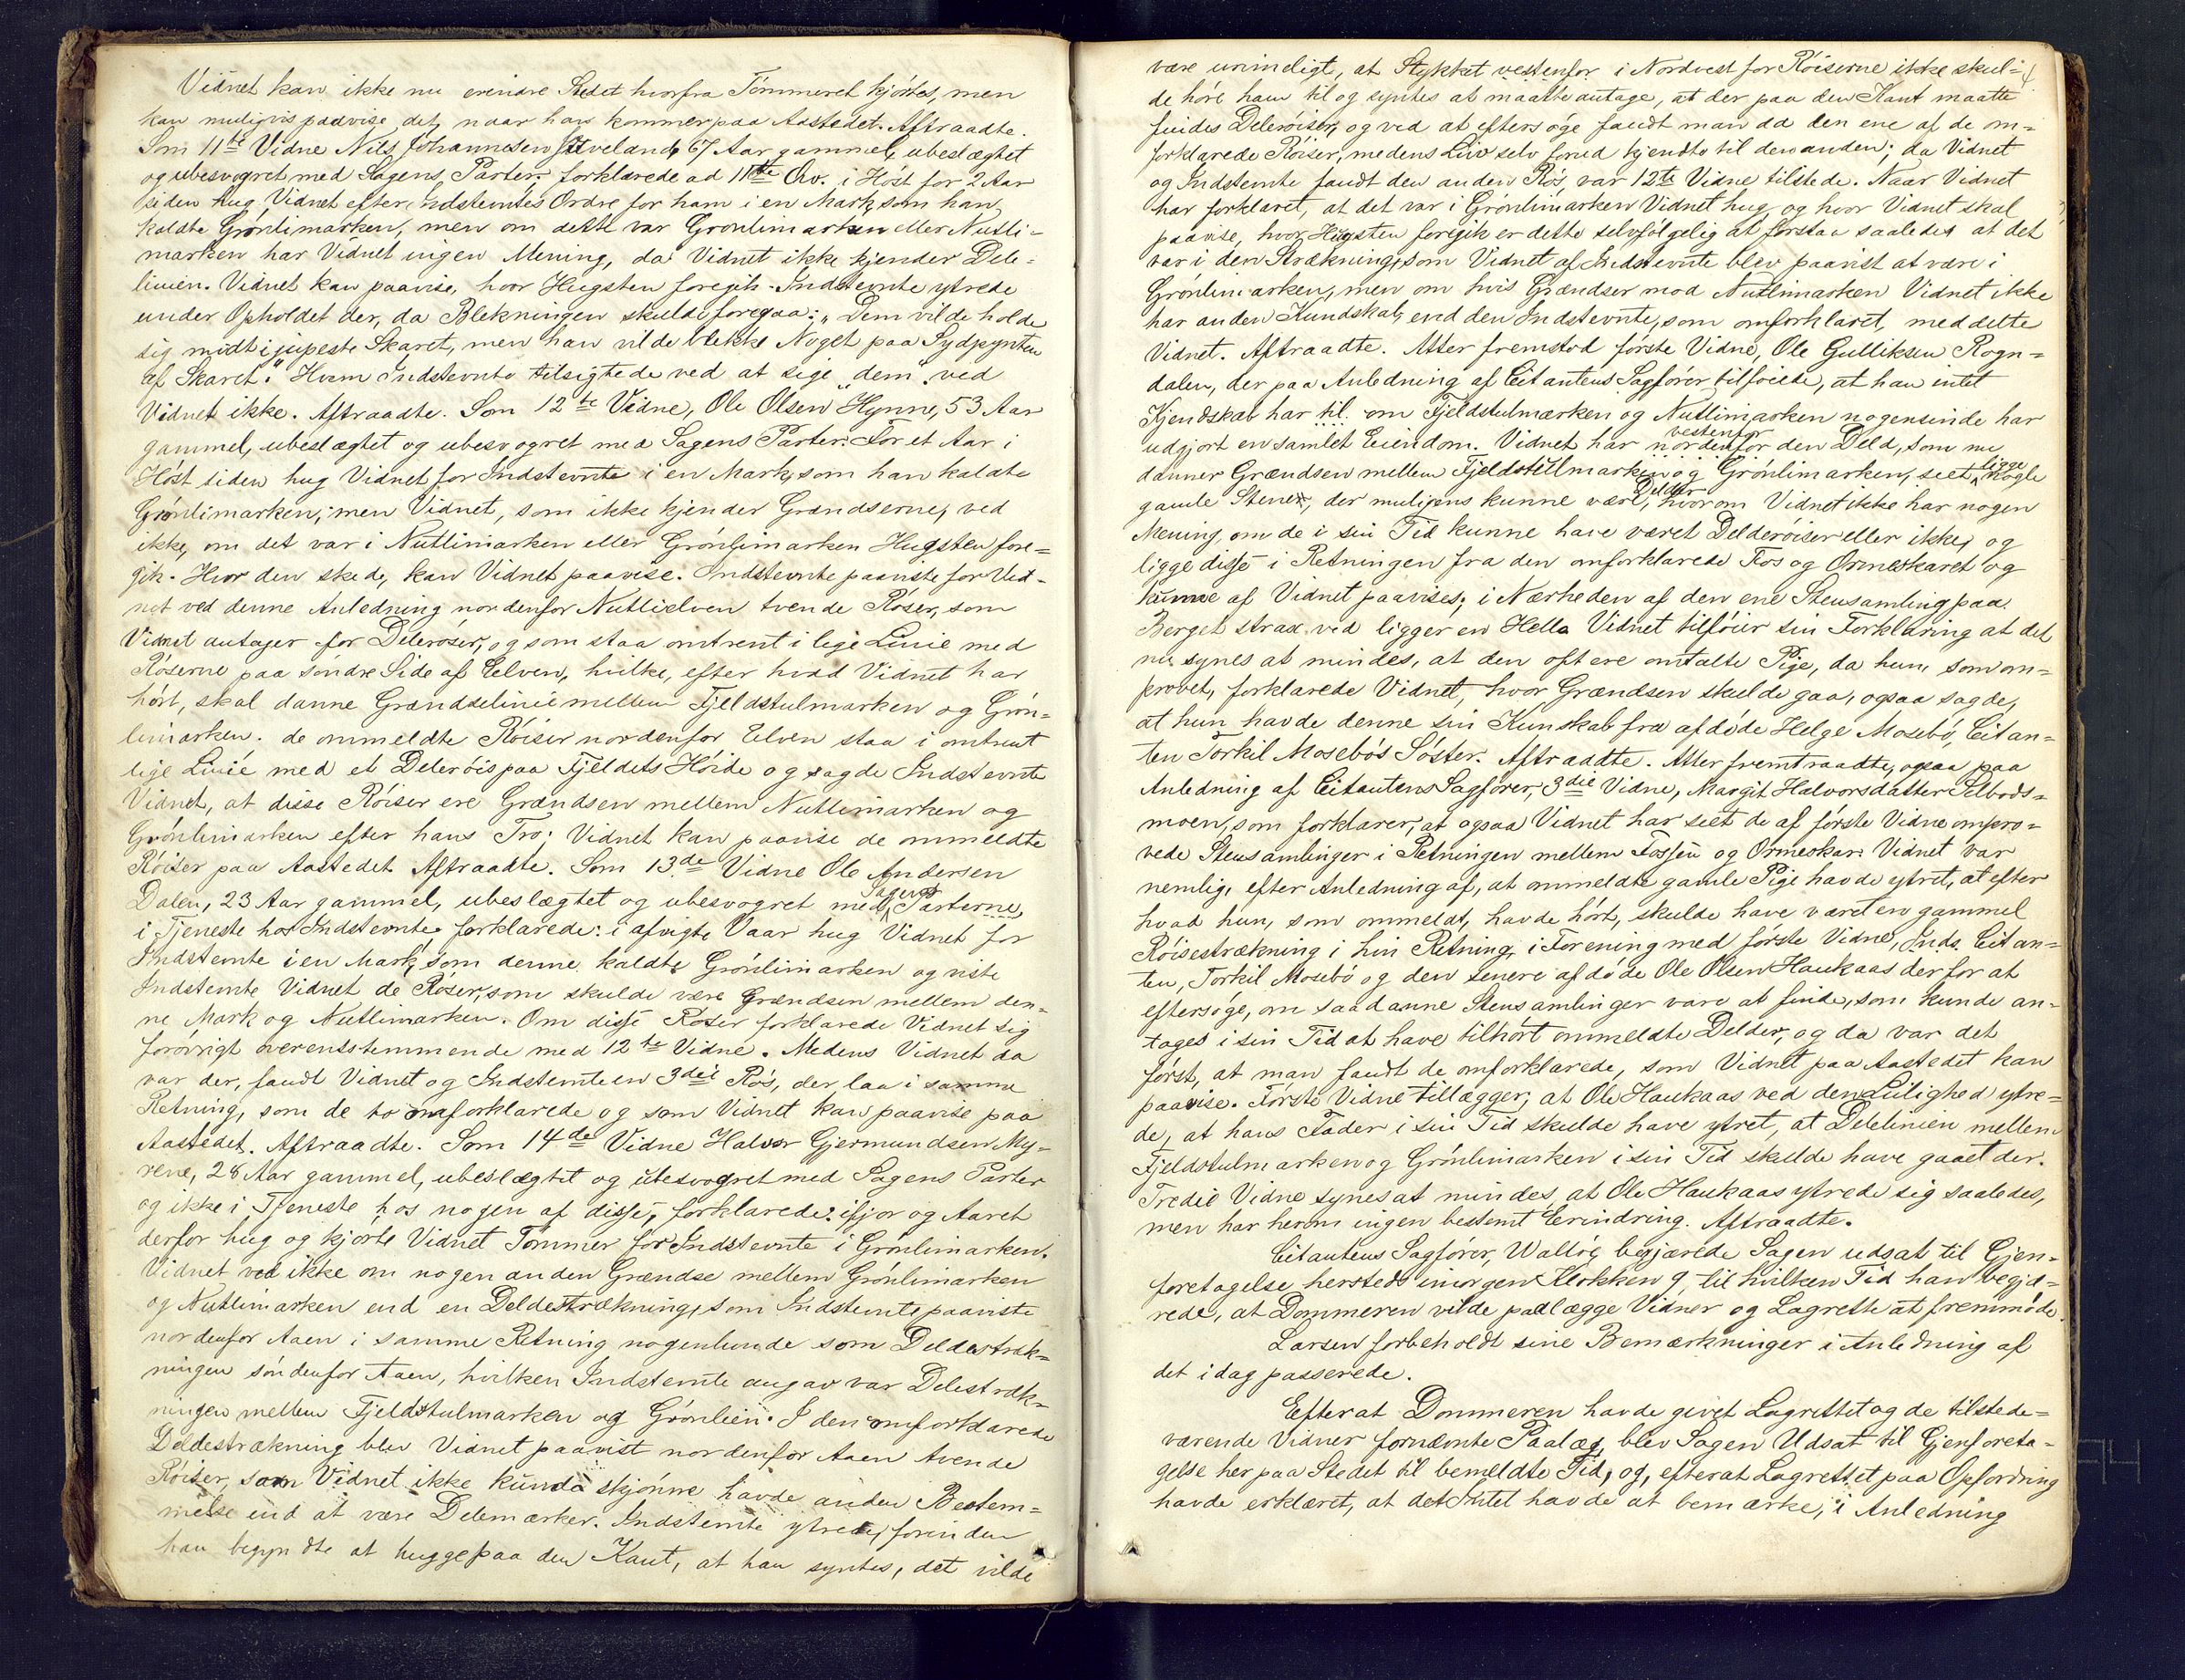 Vidnet kan ikke nu erindre Stedet hvorfra Tømmeret kjørtes, men
kan muligvis paavise det, naar han kommer paa Aastedet. Aftraadte.
Som 11te Vidne Nils Johannesen Sitveland, 67 Aar gammel, ubeslægtet
og ubesvogret med Sagens Parter. forklarede ad 11te Qv. i Høst for 2 Aar
siden hug Vidnet efter Indstevntes Ordre for ham i en Mark, som han
kaldte Grønlimarken, men om dette var Grønlimarken eller Nutli-
marken har Vidnet ingen Mening, da Vidnet ikke kjender Dele-
linien. Vidnet kan paavise, hvor Hugsten foregik. Indstevnte ytrede
under Opholdet der, da Blekningen skulde foregaa: „Dem vilde holde
sig midt i jupeste Skaret, men han vilde blekke Noget paa Sydpynten
af Skaret." Hvem Indstevnte tilsigtede ved at sige „dem" ved
Vidnet ikke. Aftraadte. Som 12te Vidne, Ole Olsen Hynne, 53 Aar
gammel, ubeslægtet og ubesvogret med Sagens Parter: For et Aar i
Høst siden hug Vidnet for Indstevnte i en Mark, som han kaldte
Grønlimarken; men Vidnet, som ikke kjender Grændserne, ved
ikke, om det var i Nutlimarken eller Grønlimarken Hugsten fore-
gik. Hvor den skede, kan Vidnet paavise. Indstevnte paaviste for Vid-
net ved denne Anledning nordenfor Nutlielven tvende Røser, som
Vidnet antager for Delerøser, og som staa omtrent i lige Linie med
Røserne paa søndre Side af Elven, hvilke, efter hvad Vidnet har
hørt, skal danne Grændselinie mellem Fjeldstulmarken og Grøn-
limarken. de ommeldte Røiser nordenfor Elven staa i omtrent
lige Linie med et Delerøis paa Fjeldets Høide og sagde Indstevnte
Vidnet, at disse Røiser ere Grændsen mellem Nutlimarken og
Grønlimarken efter hans Tro; Vidnet kan paavise de ommeldte
Røiser paa Aastedet. Aftraadte. Som 13de Vidne Ole Andersen
Dalen, 23 Aar gammel, ubeslægtet og ubesvogret med Sagens Parterne,
i Tjeneste hos Indstevnte forklarede: i afvigte Vaar hug Vidnet for
Indstevnte i en Mark, som denne kaldte Grønlimarken og viste
Indstevnte Vidnet de Røser, som skulde være Grændsen mellem den-
ne Mark og Nutlimarken. Om disse Røser forklarede Vidnet sig
forøvrigt overensstemmende med 12te Vidne. Medens Vidnet da
var der, fandt Vidnet og Indstevnte en 3die Røs, der laa i samme
Retning, som de to omforklarede og som Vidnet kan paavise paa
Aastedet. Aftraadte. Som 14de Vidne Halvor Gjermundsen My-
rene, 28 Aar gammel, ubeslægtet og ubesvogret med Sagens Parter
og ikke i Tjeneste hos nogen af disse, forklarede: ifjor og Aaret
derfør hug og kjørte Vidnet Tømmer for Indstevnte i Grønlimarken.
Vidnet ved ikke om nogen anden Grændse mellem Grønlimarken
og Nutlimarken end en Deldestrækning, som Indstevnte paaviste
nordenfor Aaen i samme Retning nogenlunde som Deldestræk-
ningen søndenfor Aaen, hvilken Indstevnte angav var Delestræk-
ningen mellem Fjeldstulmarken og Grønlien. I den omforklarede
Deldestrækning blev Vidnet paavist nordenfor Aaen tvende
Røiser, som Vidnet ikke kunde skjønne havde anden Bestem-
melse end at være Delemærker. Indstevnte ytrede, forinden
han begyndte at hugge paa den Kant, at han syntes, det vilde
være urimeligt, at Stykket vestenfor i Nordvest for Røiserne ikke skul-
de høre ham til og syntes at maatte antage, at der paa den Kant maatte
findes Delerøiser, og ved at eftersøge fandt man da den ene af de om-
forklarede Røiser, medens Liv selv forud kjendte til den anden; da Vidnet
og Indstevnte fandt den anden Røs, var 12te Vidne tilstede. Naar Vidnet
har forklaret, at det var i Grønlimarken Vidnet hug og hvor Vidnet skal
paavise, hvor Hugsten foregik er dette selvfølgelig at forstaa saaledes at det
var i den Strækning, som Vidnet af Indstevnte blev paavist at være i
Grønlimarken, men om hvis Grændser mod Nutlimarken Vidnet ikke
har anden Kundskab, end den Indstevnte, som omforklaret, meddelte
Vidnet. Aftraadte. Atter fremstod første Vidne, Ole Gulliksen Rogn-
dalen, der paa Anledning af Citantens Sagfører tilføiede, at han intet
Kjendskab har til om Fjeldstulmarken og Nutlimarken nogensinde har
udgjort en samlet Eiendom. Vidnet har nordenfor vestenfor den Deld, som nu
danner Grændsen mellem Fjeldstulmarken og Grønlimarken, seet ligge nogle
gamle Stener, der muligens kunne være Delder, hvorom Vidnet ikke har nogen
Mening, om de i sin Tid kunne have været Delderøiser eller ikke, og
ligge disse i Retningen fra den omforklarede Fos og Ormeskaret og
kunne af Vidnet paavises; i Nærheden af den ene Stensamling paa
Berget strax ved ligger en Hella. Vidnet tilføier sin Forklaring at det
nu synes at mindes, at den oftere omtalte Pige, da hun, som om-
prøvet, forklarede Vidnet, hvor Grændsen skulde gaa, ogsaa sagde,
at hun havde denne sin Kunskab fra afdøde Helge Mosebø, Citan-
ten Torkil Mosebøs Søster. Aftraadte. Atter fremtraadte, ogsaa paa
Anledning af Citantens Sagfører, 3die Vidne, Margit Halvorsdatter Selbods-
moen, som forklarer, at ogsaa Vidnet har seet de af første Vidne ompro-
vede Stensamlinger i Retningen mellem Fossen og Ormeskar. Vidnet var
nemlig, efter Anledning af, at ommeldte gamle Pige havde ytret, at efter
hvad hun, som ommeldt, havde hørt, skulde have været en gammel
Røisestrækning i hin Retning, i Forening med første Vidne, Inds. Citan-
ten, Torkil Mosebø og den senere afdøde Ole Olsen Haukaas der for at
eftersøge, om saadanne Stensamlinger vare at finde, som kunde an-
tages i sin Tid at have tilhørt ommeldte Delder, og da var det
først, at man fandt de omforklarede, som Vidnet paa Aastedet kan
paavise. Første Vidne tillægger, at Ole Haukaas ved den Leilighed ytre-
de, at hans Fader i sin Tid skulde have ytret, at Delelinien mellem
Fjeldstulmarken og Grønlimarken i sin Tid skulde have gaaet der.
Tredie Vidne synes at mindes, at Ole Haukaas ytrede sig saaledes,
men har herom ingen bestemt Erindring. Aftraadte.
Citantens Sagfører, Walløe, begjærede Sagen udsat til Gjen-
foretagelse hersteds imorgen Klokken 9, til hvilken Tid han begjæ-
rede, at Dommeren vilde paalægge Vidner og Lagrette at fremmøde.
Larsen forbeholdt sine Bemærkninger i Anledning af
det idag passerede.
Efterat Dommeren havde givet Lagrettet og de tilstede-
værende Vidner fornævnte Paalæg, blev Sagen Udsat til Gjenforeta-
gelse her paa Stedet til bemeldte Tid, og, efterat Lagrettet paa Opfordring
havde erklæret, at det Intet havde at bemærke, i Anledning